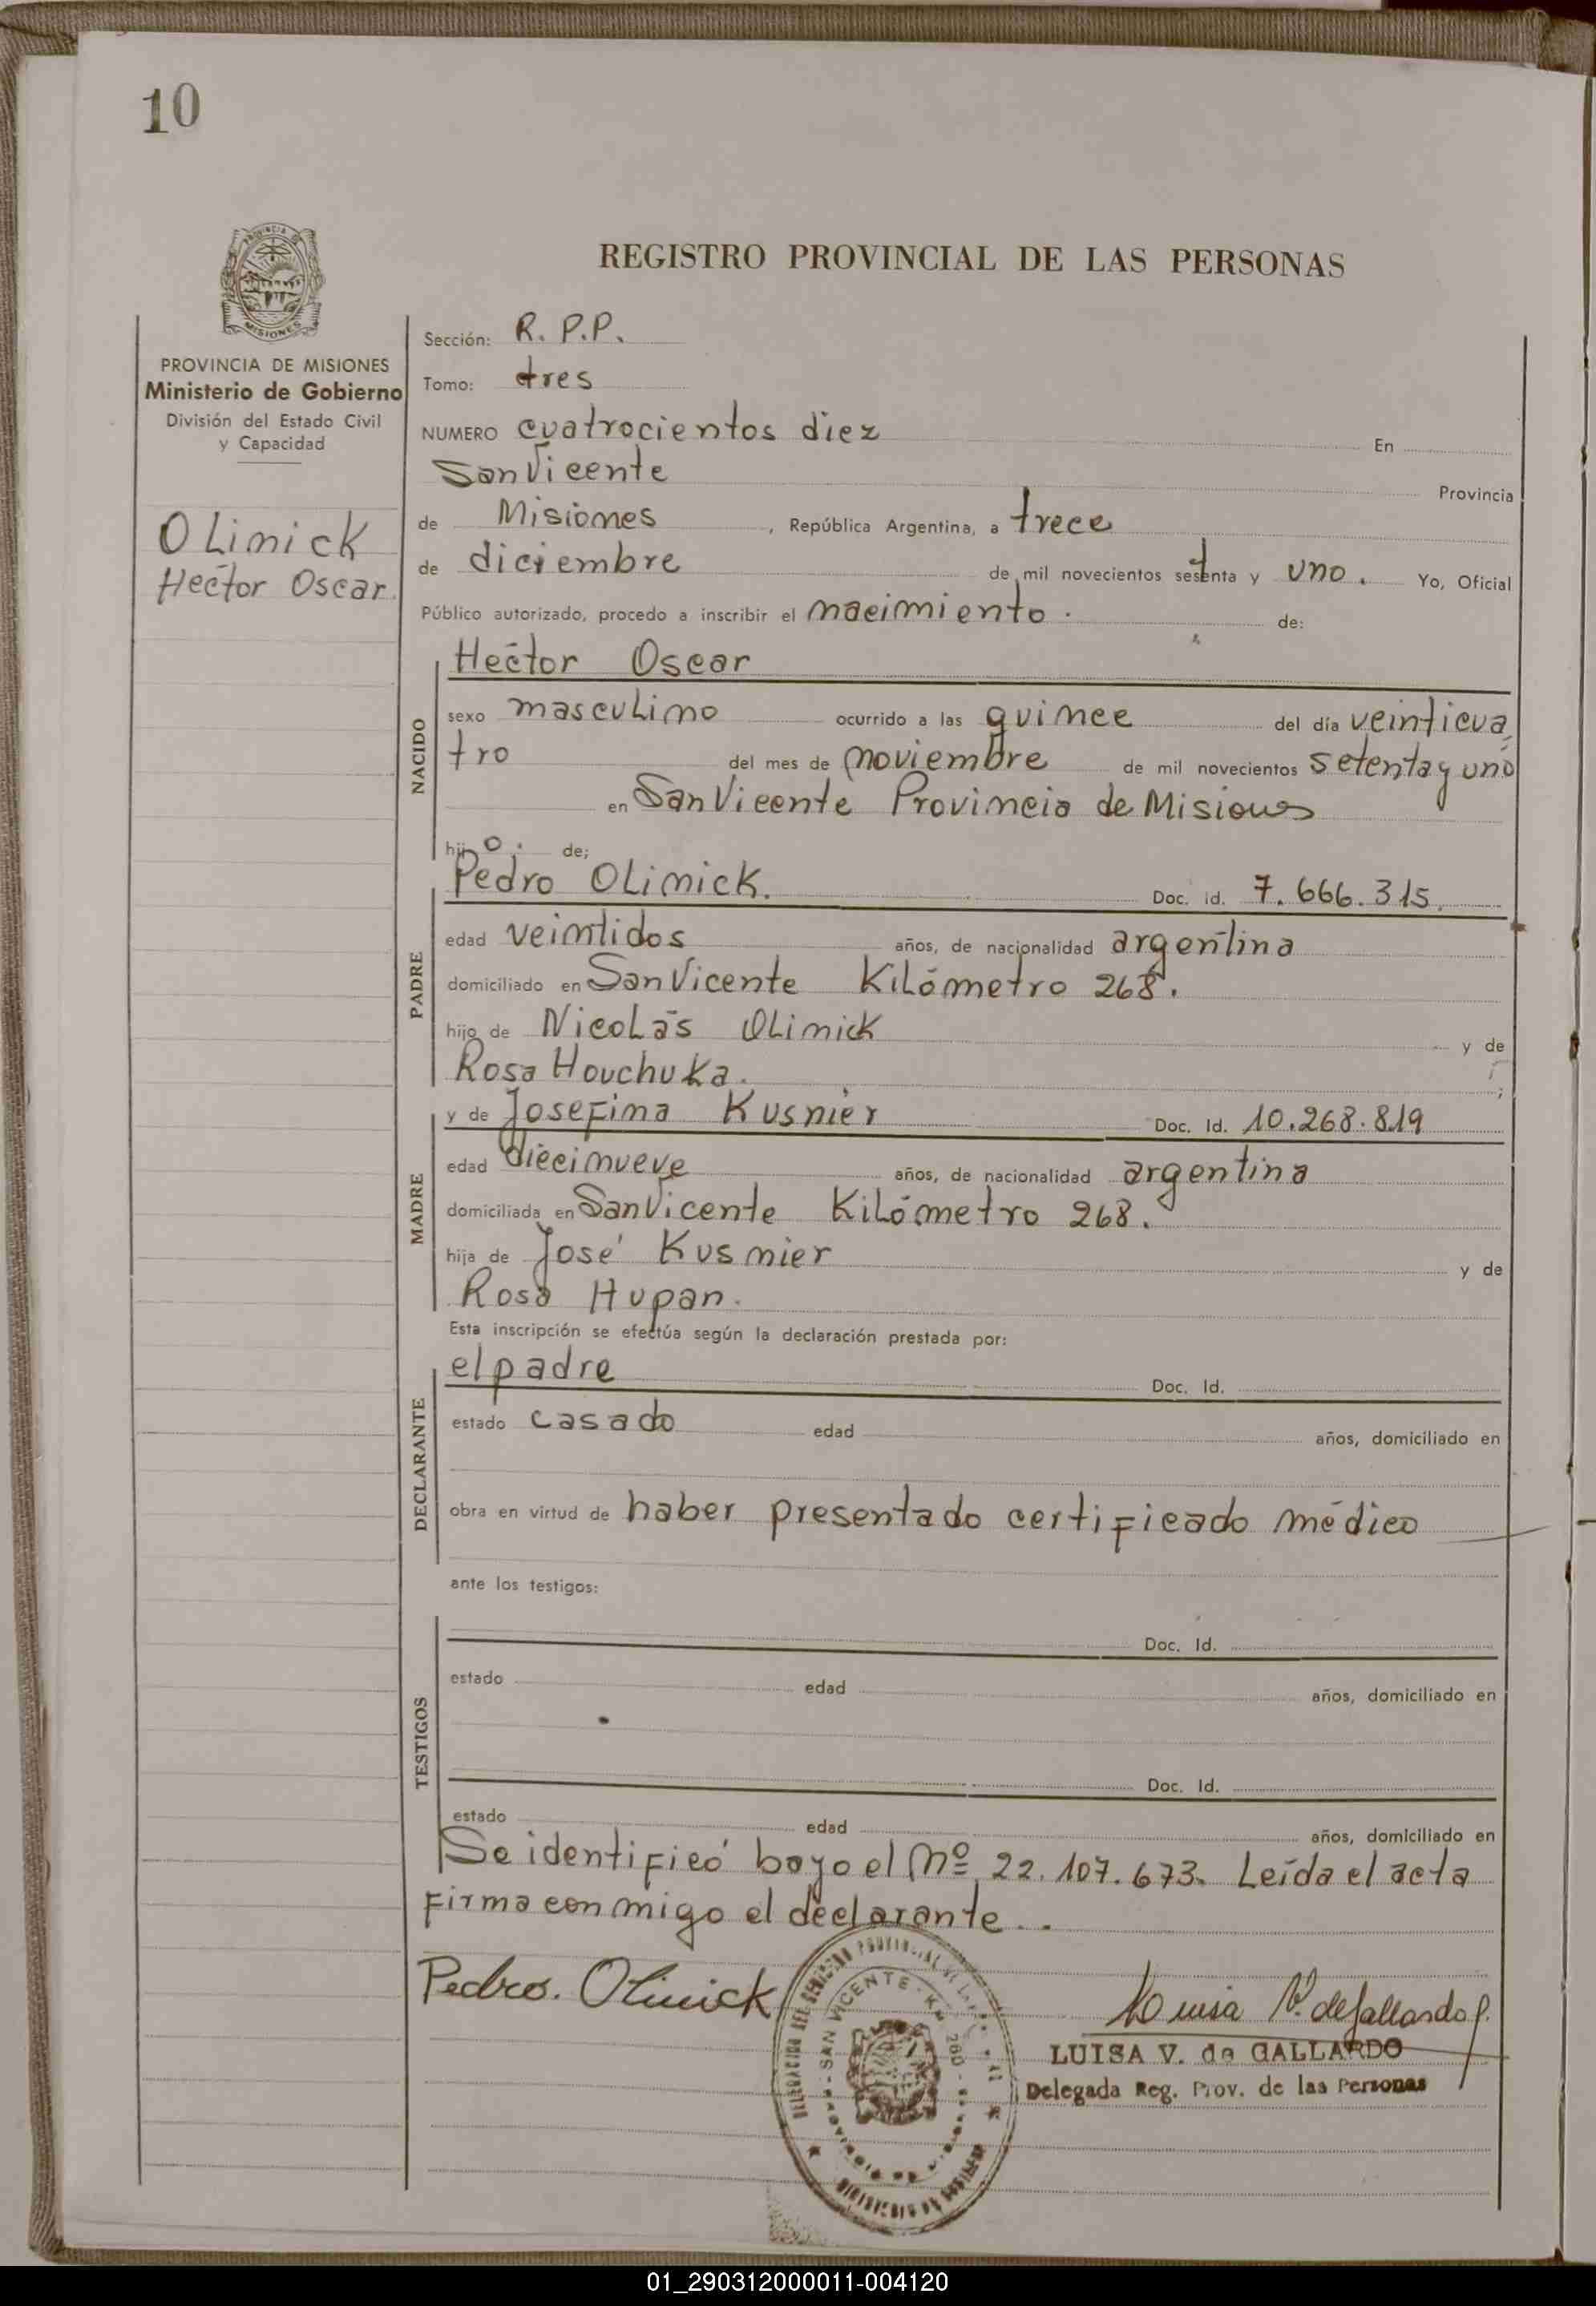 10
REGISTRO PROVINCIAL DE LAS PERSONAS
PROVINCIA DE
MISIONES
PROVINCIA DE MISIONES
Ministerio de Gobierno
División del Estado Civil
y Capacidad
Olinick
Hector Oscar.
Sección: R. P. P.
Tomo: tres
NUMERO cuatrocientos diez En
San Vicente Provincia
de Misiones, República Argentina, a trece
de diciembre de mil novecientos setenta y uno. Yo, Oficial
Público autorizado, procedo a inscribir el nacimiento. de:
NACIDO
Hector Oscar
sexo masculino ocurrido a las quince del día veinticua
tro del mes de noviembre de mil novecientos setenta y uno
en San Vicente Provincia de Misiones
hijo. de;
PADRE
Pedro Olinick. Doc. id. 7.666.315.
edad veintidos años, de nacionalidad argentina
domiciliado en San Vicente Kilómetro 268.
hijo de Nicolás Olinick y de
Rosa Houchuka. ;
MADRE
y de Josefina Kusnier Doc. Id. 10.268.819
edad diecinueve años, de nacionalidad argentina
domiciliada en San Vicente Kilómetro 268.
hija de José Kusnier y de
Rosa Hupan.
Esta inscripción se efectúa según la declaración prestada por:
DECLARANTE
el padre Doc. Id.
estado casado edad años, domiciliado en
obra en virtud de haber presentado certificado médico
ante los testigos:
TESTIGOS
Doc. Id.
estado edad años, domiciliado en
Doc. Id.
estado edad años, domiciliado en
Se identificó bayo el Nº 22.107.673. Leída el acta
firma conmigo el declarante..
Pedro. Olinick
Luisa V. de Gallardo
LUISA V. de GALLARDO
Delegada Reg. Prov. de las Personas
SAN VICENTE
01_290312000011-004120